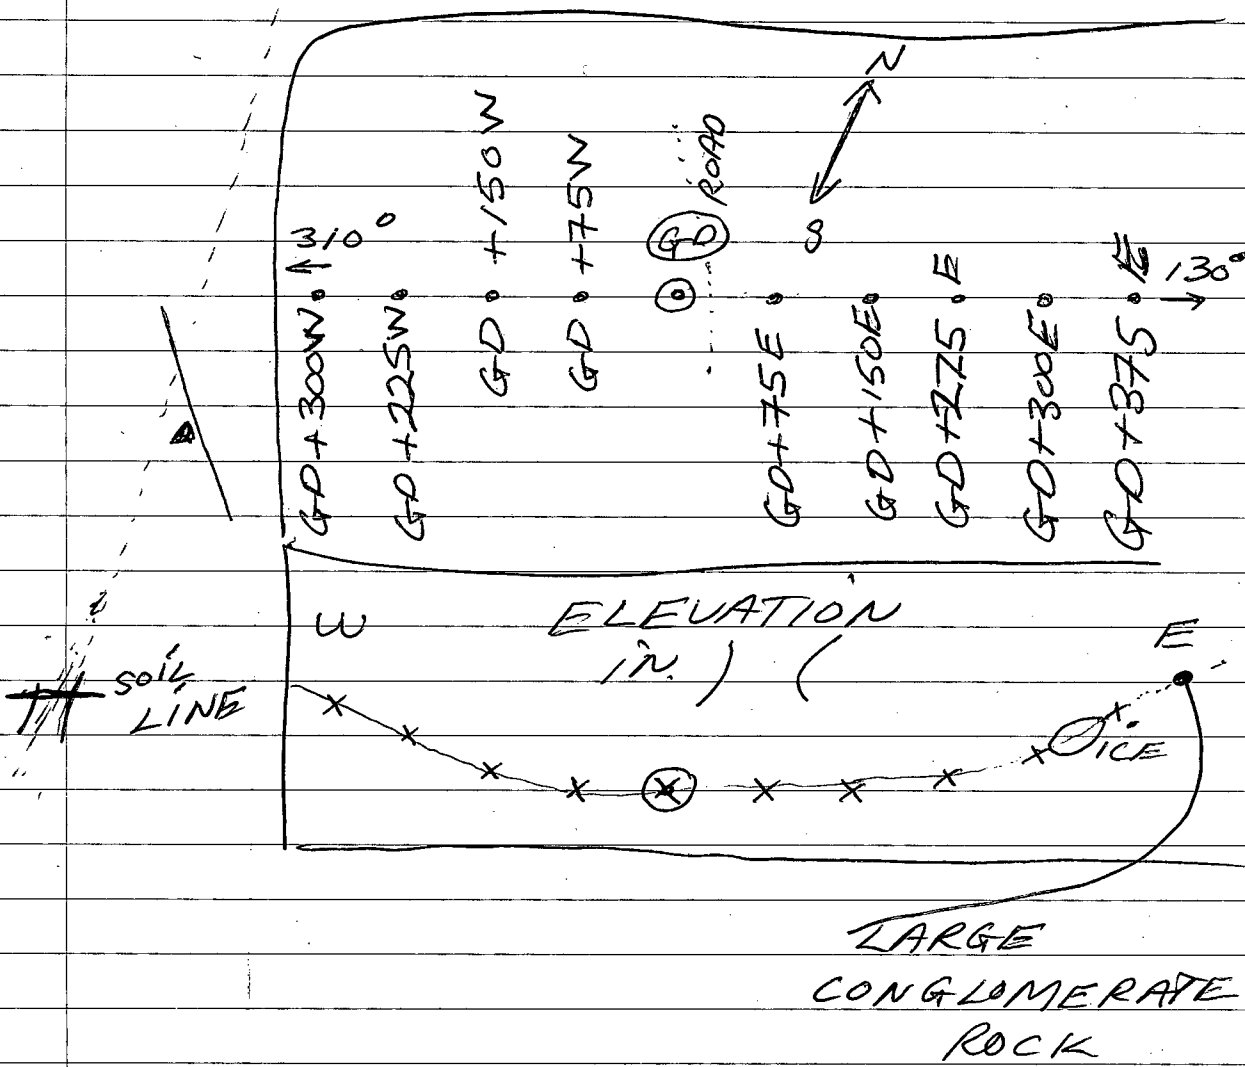 N
ROAD
310°
GD
S
130°
GD+300W
GD+225W
GD +150W
GD +75W
GD+75E
GD+150E
GD+225 E
GD+300E
GD+375 E
W
ELEVATION
IN ) (
E
SOIL
LINE
ICE
LARGE
CONGLOMERATE
ROCK